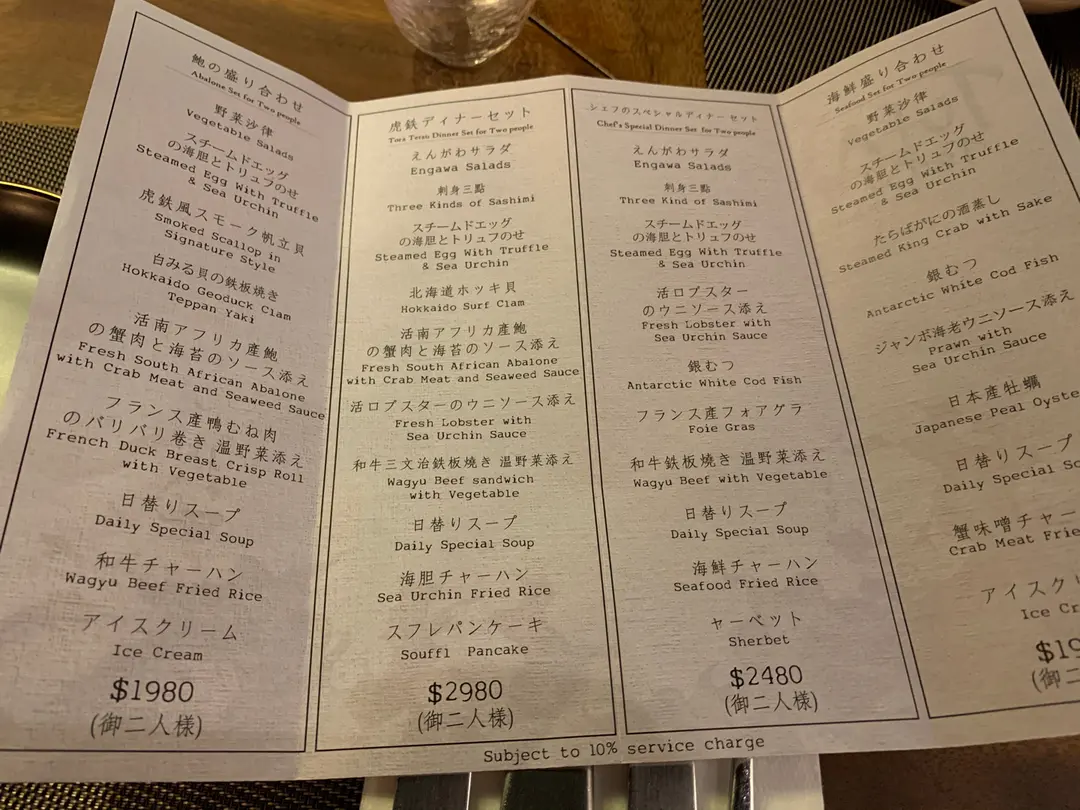 鮑の盛り合わせ
Abalone Set for Two people
野菜沙律
Vegetable Salads
スチームドエッグ
の海胆とトリュフのせ
Steamed Egg With Truffle
& Sea Urchin
虎鉄風スモーク帆立貝
Smoked Scallop in
Signature Style
白みる貝の鉄板焼き
Hokkaido Geoduck Clam
Teppan Yaki
活南アフリカ産鮑
の蟹肉と海苔のソース添え
Fresh South African Abalone
with Crab Meat and Seaweed Sauce
フランス産鴨むね肉
のパリパリ巻き 温野菜添え
French Duck Breast Crisp Roll
with Vegetable
日替りスープ
Daily Special Soup
和牛チャーハン
Wagyu Beef Fried Rice
アイスクリーム
Ice Cream
$1980
(御二人様)
虎鉄ディナーセット
Tora Tetsu Dinner Set for Two people
えんがわサラダ
Engawa Salads
刺身三點
Three Kinds of Sashimi
スチームドエッグ
の海胆とトリュフのせ
Steamed Egg With Truffle
& Sea Urchin
北海道ホッキ貝
Hokkaido Surf Clam
活南アフリカ産鮑
の蟹肉と海苔のソース添え
Fresh South African Abalone
with Crab Meat and Seaweed Sauce
活ロブスターのウニソース添え
Fresh Lobster with
Sea Urchin Sauce
和牛三文治鉄板焼き 温野菜添え
Wagyu Beef sandwich
with Vegetable
日替りスープ
Daily Special Soup
海胆チャーハン
Sea Urchin Fried Rice
スフレパンケーキ
Souffl Pancake
$2980
(御二人様)
シェフのスペシャルディナーセット
Chef's Special Dinner Set for Two people
えんがわサラダ
Engawa Salads
刺身三點
Three Kind of Sashimi
スチームドエッグ
の海胆とトリュフのせ
Steamed Egg With Truffle
& Sea Urchin
活ロブスター
のウニソース添え
Fresh Lobster with
Sea Urchin Sauce
銀むつ
Antarctic White Cod Fish
フランス産フォアグラ
Foie Gras
和牛鉄板焼き 温野菜添え
Wagyu Beef with Vegetable
日替りスープ
Daily Special Soup
海鮮チャーハン
Seafood Fried Rice
ャーベット
Sherbet
$2480
(御二人様)
海鮮盛り合わせ
Seafood Set for Two people
野菜沙律
Vegetable Salads
スチームドエッグ
の海胆とトリュフのせ
Steamed Egg With Truffle
& Sea Urchin
たらばがにの酒蒸し
Steamed King Crab with Sake
銀むつ
Antarctic White Cod Fish
ジャンボ海老ウニソース添え
Prawn with
Sea Urchin Sauce
日本産牡蠣
Japanese Peal Oyste
日替りスープ
Daily Special So
蟹味噌チャー
Crab Meat Frie
アイスク
Ice Cr
$19
(御二
Subject to 10% service charge